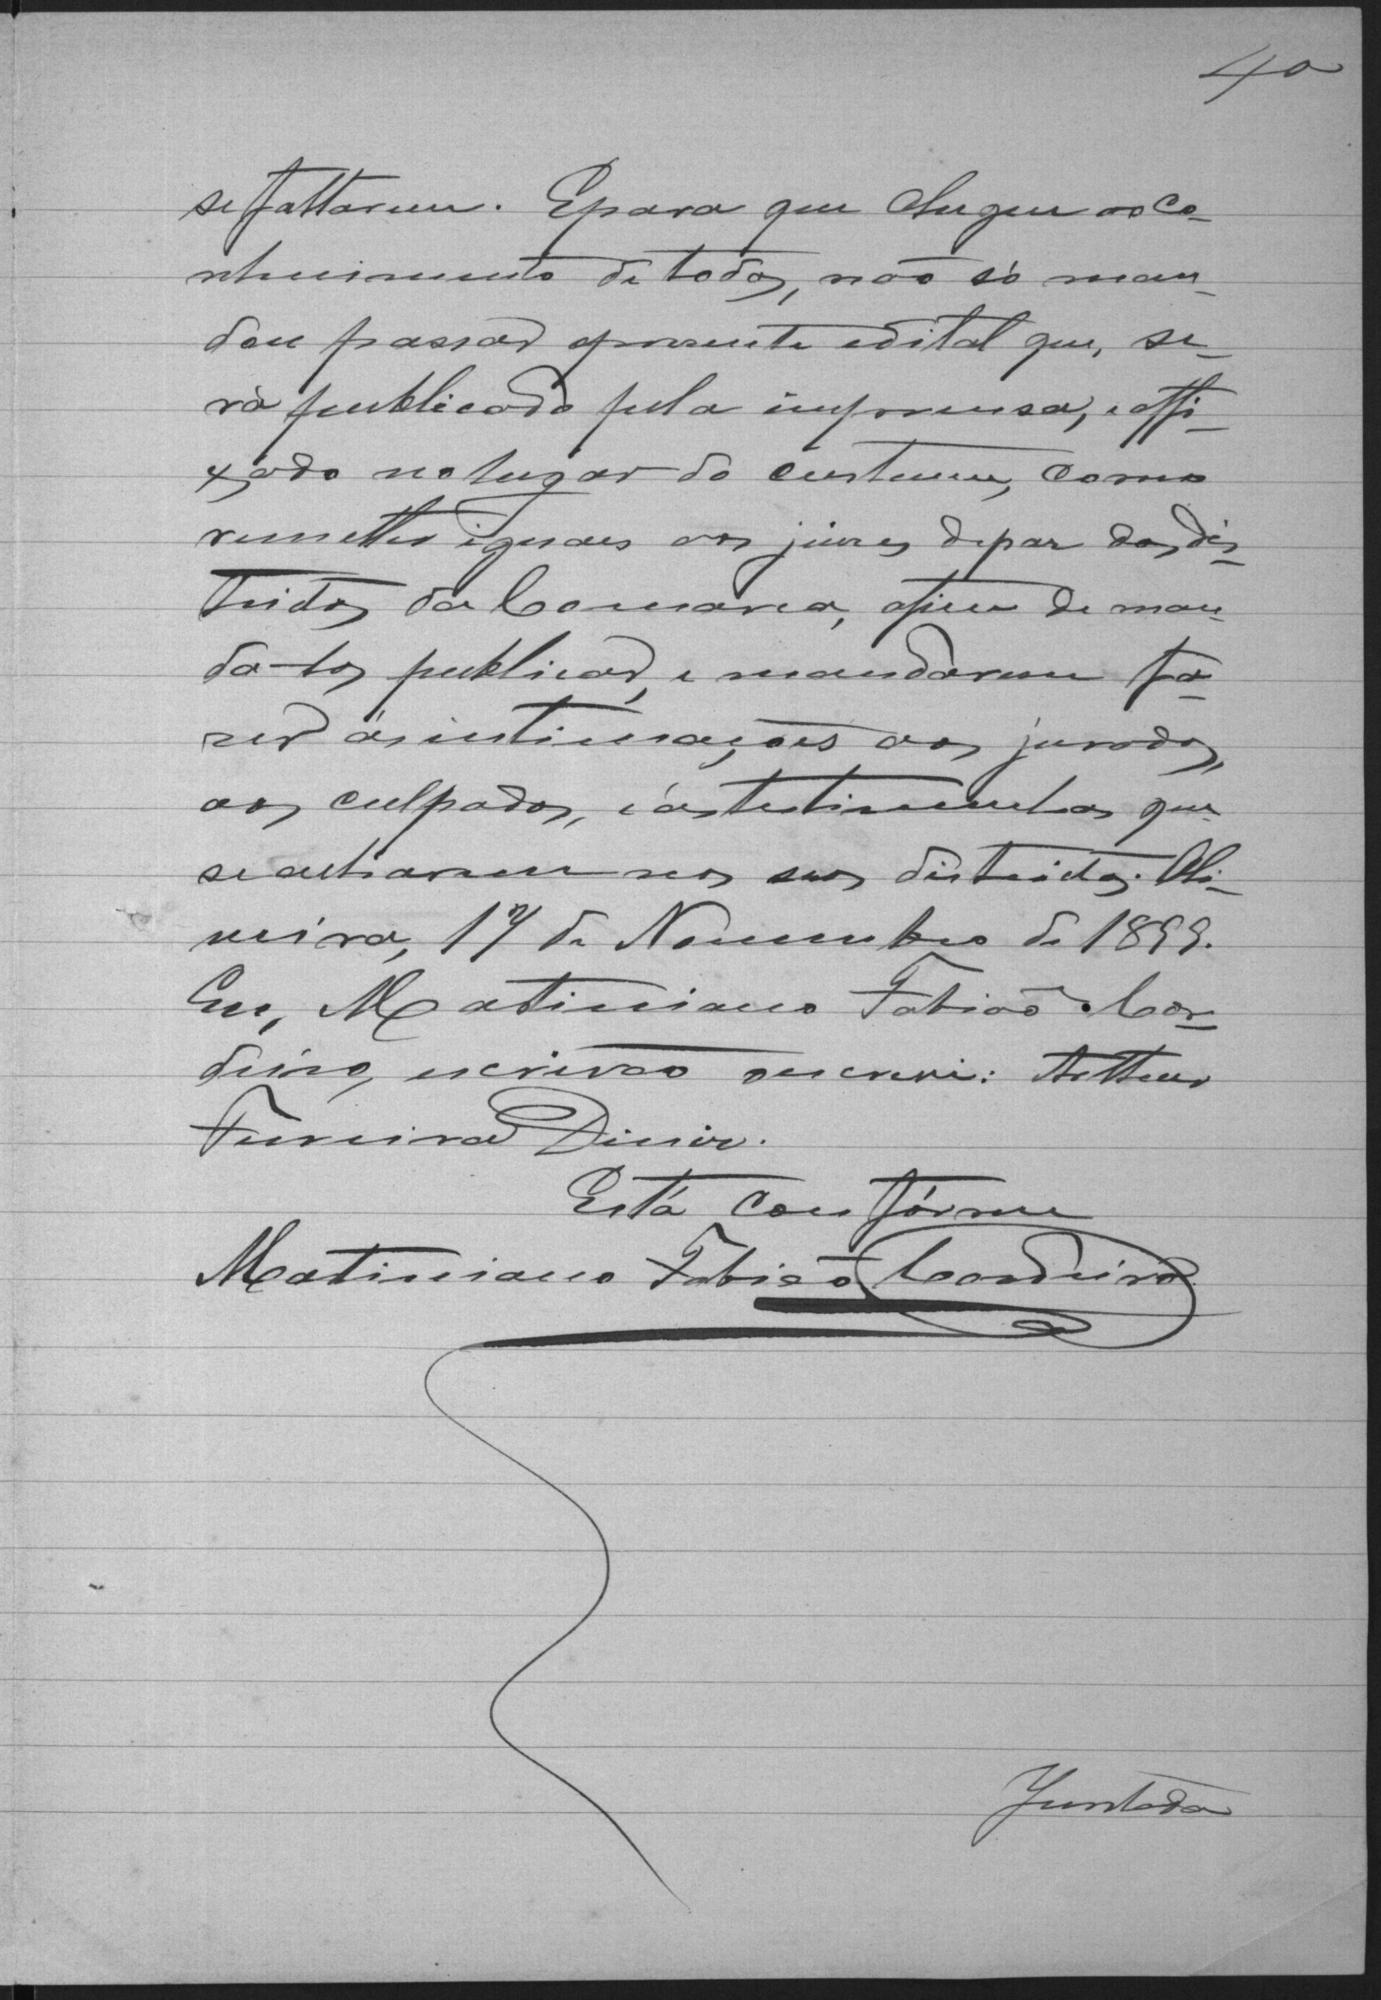 40
se faltarem. E para que chegue ao co-
nhecimento de todos, não só man-
dou passar o presente edital que, se-
rá publicado pela imprensa, e affi-
xado no lugar do custume, como
remetter iguaes aos juizes de paz dos dis-
trictos da Comarca, afim de man-
da-los publicar, e mandarem fa-
zer as intimações aos jurados,
aos culpados, e as testimunhas que
se acharem nos seos districtos. Oli-
veira, 17 de Novembro de 1899.
Eu, Matiniano Fabião Cor-
deiro, escrivão o escrevi: Arthur
Ferreira Diniz.
Está confórme
Matiniano Fabião Cordeiro
Juntada